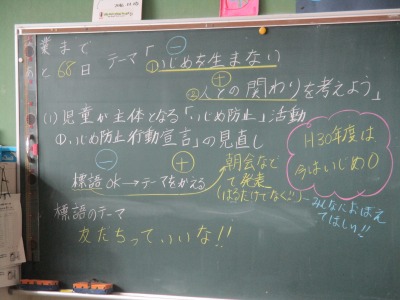 業まで
あと68日 テーマ「
⊖
①いじめを生まない
⊕
②人との関わりを考えよう」
(1) 児童が主体となる「いじめ防止」活動
①「いじめ防止行動宣言」の見直し
⊖ ⊕
標語OK→テーマをかえる
朝会などで発表
標語のテーマ
友だちっていいな!!
H30年度は
今はいじめ0
みんなにおぼえてほしい!!